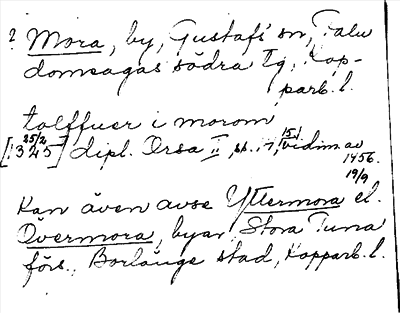 ? Mora, by, Gustafs sn, Falu
domsagas södra tg, Kop-
parb. l.
tolffuer i morom
[1325 25/2] dipl. Orsa II, st. 17, 15/1 vidim. av
1456.
19/9
Kan även avse Yttermora el.
Övermora, byar, Stora Tuna
förs., Borlänge stad, Kopparb. l.